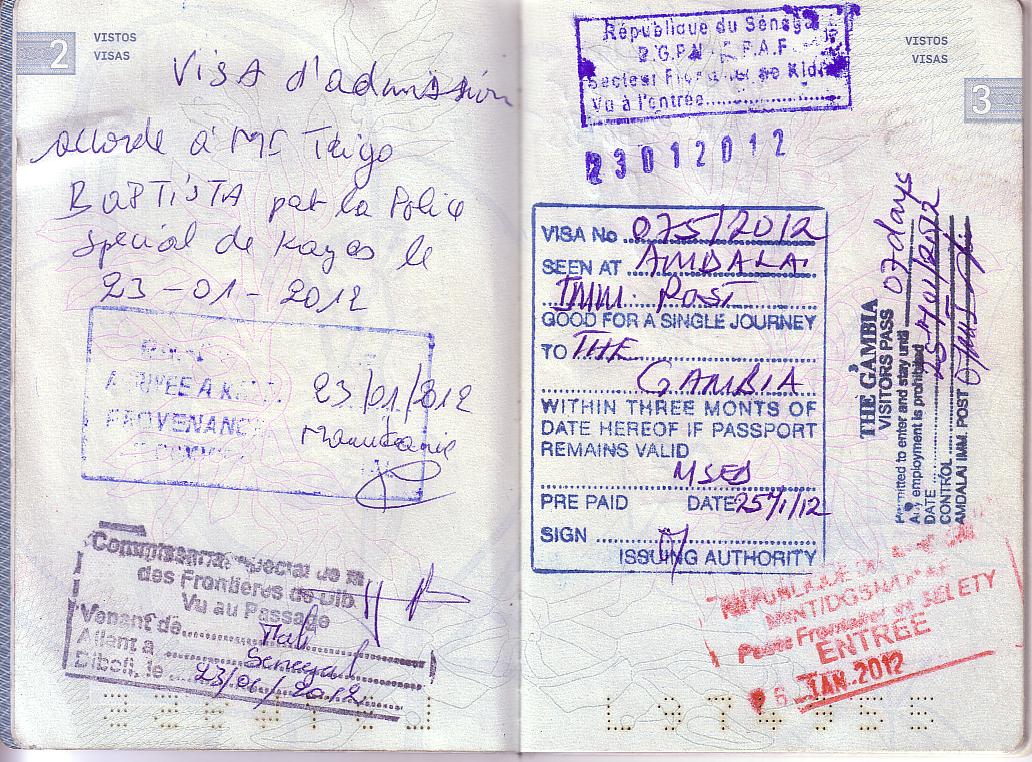 2
VISTOS
VISAS
Visa d'admission
accorde à Mr Teigo
BAPTISTA par la Police
Spécial de Kayes le
23-01-2012
ARRIVEE A
PROVENANCE
23/01/2012
Mauritanie
Commissariat Special de
des Frontieres de Dib
Vu au Passage
Venant de Mali
Allant a Senegal
Diboli, le 23/01/2012
VISTOS
VISAS
3
République du Sénégal
D.G.P.N - P.A.F
Secteur Frontalier de Kidi
Vu à l'entrée
23012012
VISA No 075/2012
SEEN AT AMDALAI
IMM. Post
GOOD FOR A SINGLE JOURNEY
TO THE
GAMBIA
WITHIN THREE MONTS OF
DATE HEREOF IF PASSPORT
REMAINS VALID
PRE PAID DATE 25/1/12
SIGN
ISSUING AUTHORITY
THE GAMBIA
VISITORS PASS
Permitted to enter and stay until 07 days
Any employment is prohibited
DATE 25/01/2012
CONTROL
AMDALAI IMM. POST
REPUBLIQUE DU
MINT/DGSN
Poste Frontalier de SELETY
ENTREE
JAN. 2012